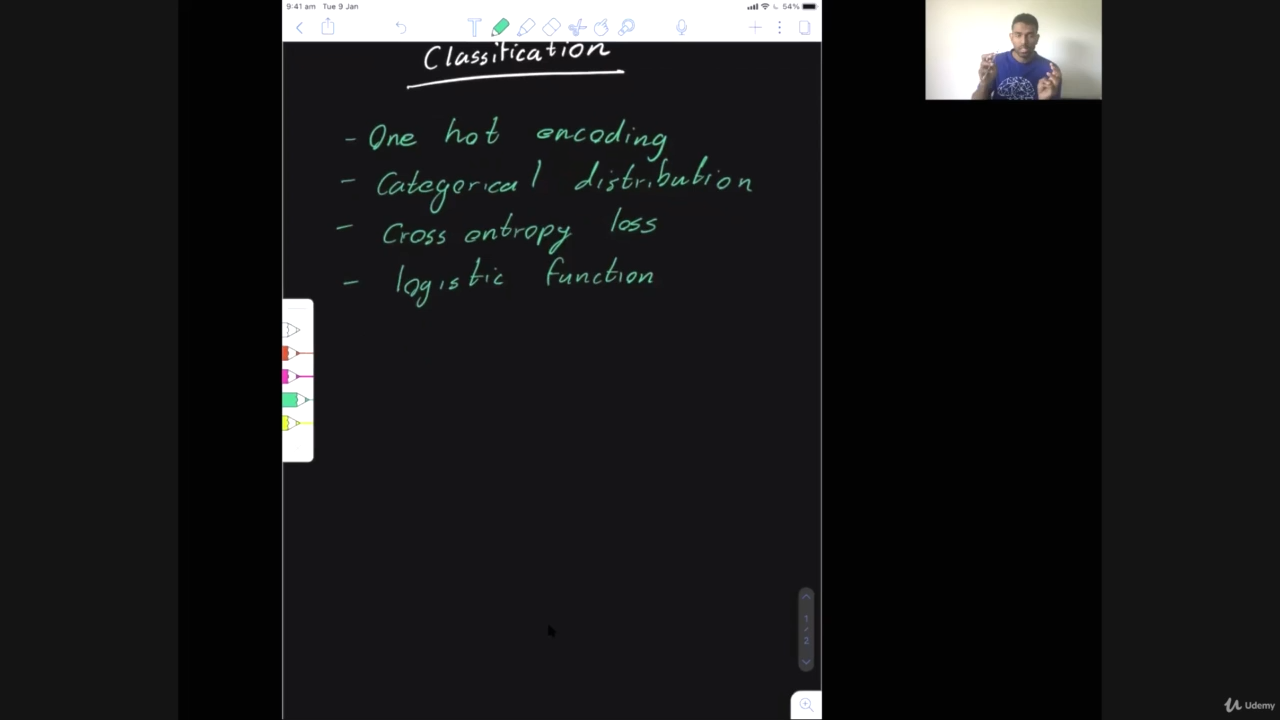 9:41 am Tue 9 Jan
54%
T
Classification
- One hot encoding
- Categorical distribution
- Cross entropy loss
- logistic function
1
/
2
Udemy